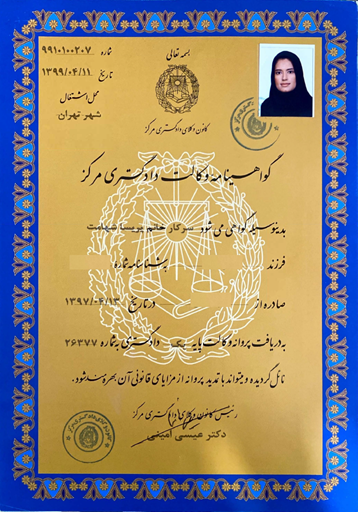 بسمه تعالی
شماره ۹۹۱۰۱۰۰۲۰۷
تاریخ ۱۳۹۹/۰۴/۱۱
محل اشتغال
شهر تهران
کانون وکلای دادگستری مرکز
گواهینامه وکالت دادگستری مرکز
بدینوسیله گواهی می شود سرکار خانم پریسا شهامت
فرزند به شناسنامه شماره
صادره از در تاریخ ۱۳۹۷/۰۴/۱۳
به دریافت پروانه وکالت پایه یک دادگستری به شماره ۲۶۳۷۷
نائل گردیده و میتواند با تمدید پروانه از مزایای قانونی آن بهره مند شود.
رئیس کانون وکلای دادگستری مرکز
دکتر عیسی امینی